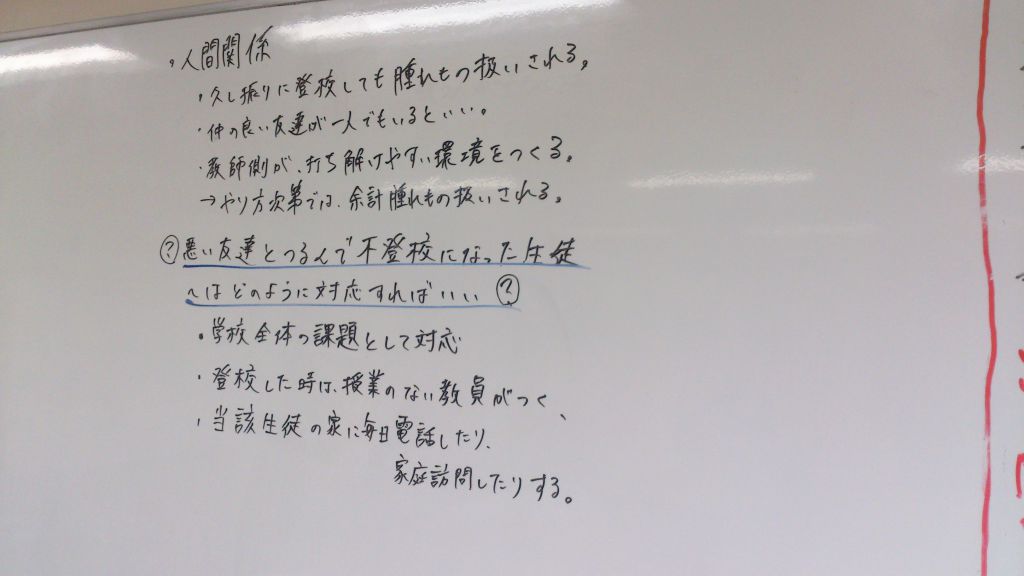 ・人間関係
・久し振りに登校しても腫れもの扱いされる。
・仲の良い友達が一人でもいるといい。
・教師側が、打ち解けやすい環境をつくる。
→やり方次第では、余計腫れもの扱いされる。
?悪い友達とつるんで不登校になった生徒
へはどのように対応すればいい?
・学校全体の課題として対応
・登校した時は、授業のない教員がつく、
・当該生徒の家に毎日電話したり、
家庭訪問したりする。